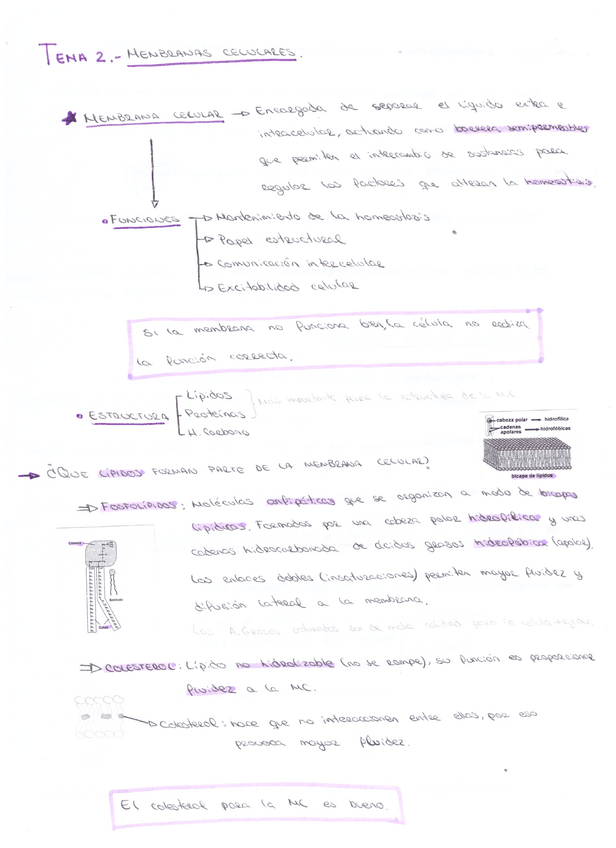 TEMA 2.- MEMBRANAS CELULARES.
★ MEMBRANA CELULAR → Encargada de separar el líquido extra e
intracelular, actuando como barrera semipermeables
que permiten el intercambio de sustancias para
regular los factores que alteran la homeostasis.
• FUNCIONES → Mantenimiento de la homeostasis
→ Papel estructural
→ Comunicación intercelular
→ Excitabilidad celular
Si la membrana no funciona bien, la célula no realiza
la función correcta.
• ESTRUCTURA Lípidos
Proteínas
H. Carbono
Más importante para la estructura de la MC
cabeza polar → hidrofílica
cadenas apolares → hidrofóbicas
bicapa de lípidos
→ ¿QUE LÍPIDOS FORMAN PARTE DE LA MEMBRANA CELULAR?
⇒ FOSFOLÍPIDOS: Moléculas anfipáticas que se organizan a modo de bicapas
lipídicas. Formados por una cabeza polar hidrofílica y unas
cadenas hidrocarbonada de ácidos grasos hidrofóbica (apolar).
Los enlaces dobles (insaturaciones) permiten mayor fluidez y
difusión lateral a la membrana.
Los A. Grasos saturados son de mala calidad para la célula
⇒ COLESTEROL: Lípido no hidrolizable (no se rompe), su función es proporcionar
fluidez a la MC.
→ Colesterol: hace que no interaccionen entre ellas, por eso
provoca mayor fluidez.
El colesterol para la MC es bueno.